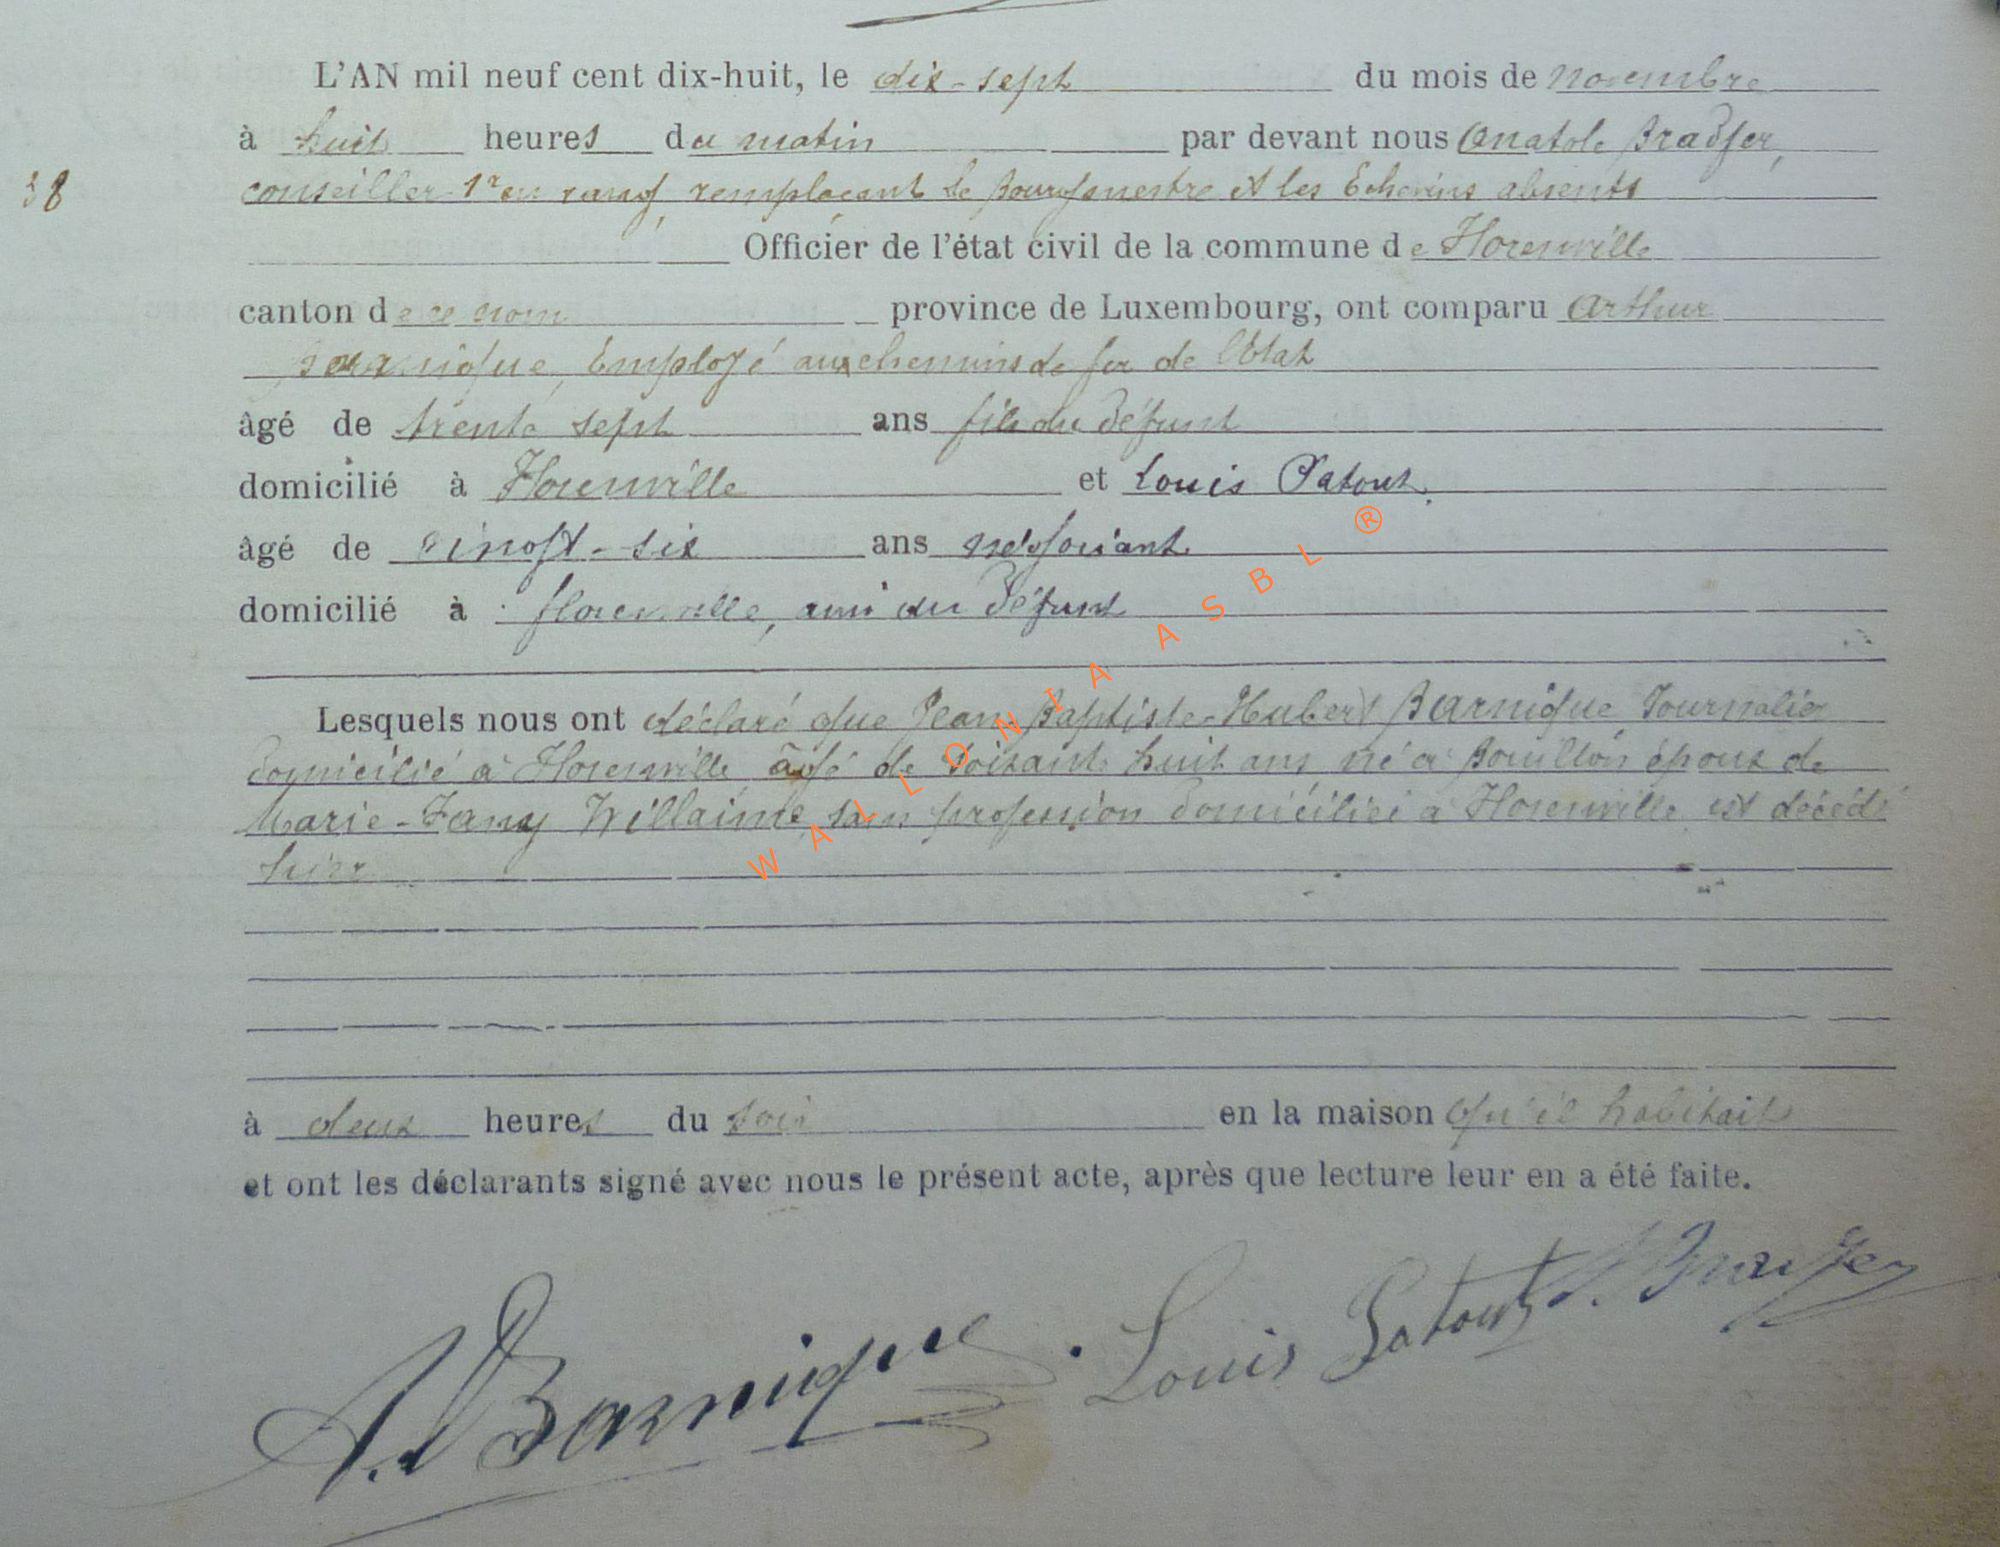 L'AN mil neuf cent dix-huit, le dix-sept du mois de novembre
à huit heures du matin par devant nous Anatole Bradfer,
38
conseiller 1er en rang, remplaçant le Bourgmestre et les Echevins absents
Officier de l'état civil de la commune de Florenville
canton de ce nom province de Luxembourg, ont comparu Arthur
Barnique, Employé aux chemins de fer de l'Etat
âgé de trente sept ans fils du défunt
domicilié à Florenville et Louis Patout.
âgé de vingt-six ans négociant
domicilié à florenville, ami du défunt
Lesquels nous ont déclaré que Jean-Baptiste-Hubert Barnique Journalier
domicilié à Florenville âgé de soixante huit ans né à Bouillon époux de
Marie-Fany Willaime sans profession domiciliée à Florenville est décédé
hier
à deux heures du soir en la maison qu'il habitait
et ont les déclarants signé avec nous le présent acte, après que lecture leur en a été faite.
A. Barnique Louis Patout A. Bradfer
WALLONIA ASBL ®